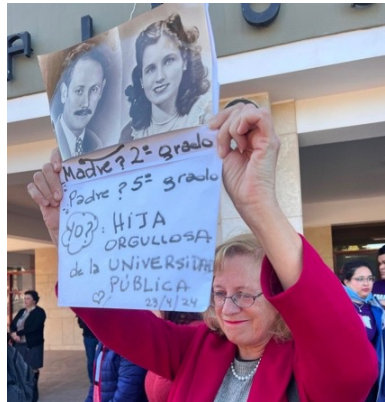 Madre? 2º grado
Padre? 5º grado
YO?: HIJA
ORGULLOSA
de la UNIVERSIDAD
PÚBLICA
23/4/24